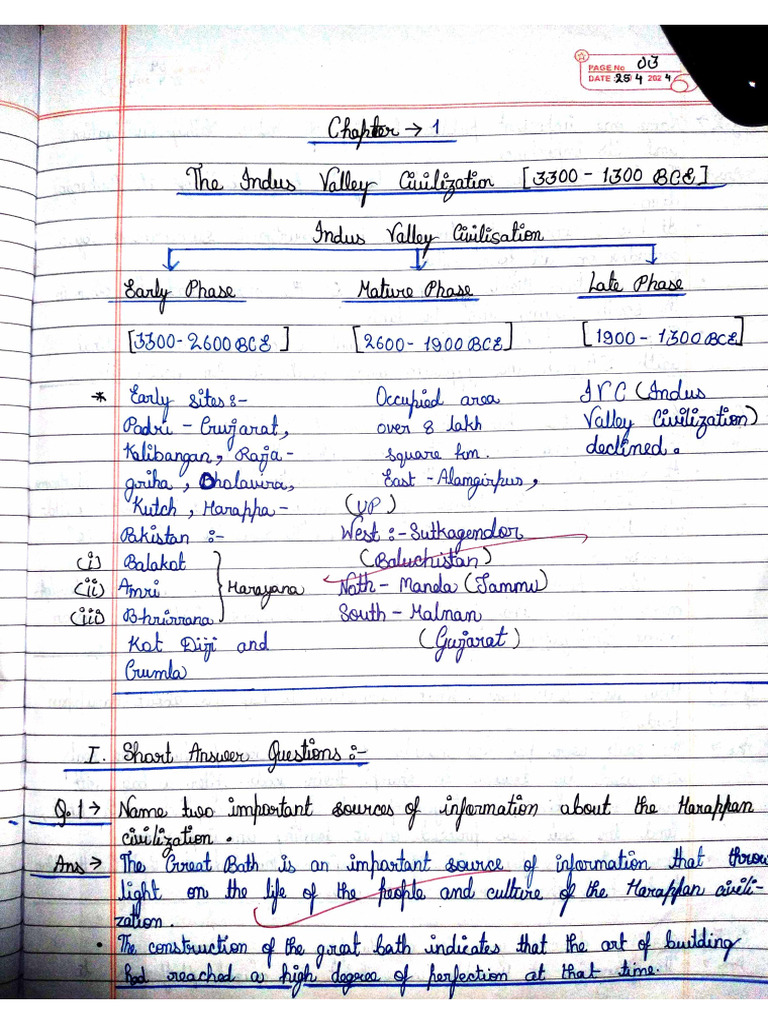 PAGE No 03
DATE 25 4 2024
Chapter → 1
The Indus Valley Civilization [3300 - 1300 BCE]
Indus Valley Civilisation
Early Phase
[3300-2600 BCE]
* Early sites:-
Padri - Gujarat,
Kalibangan, Raja-
griha, Dholavira,
Kutch, Harappa -
Pakistan :-
(i) Balakot
(ii) Amri
(iii) Bhrirrana
Harayana
Kot Diji and
Gumla
Mature Phase
[2600 - 1900 BCE]
Occupied area
over 8 lakh
square km.
East - Alamgirpus,
(UP)
West :- Sutkagendor
(Baluchistan)
Noth - Manda (Jammu)
South - Malnan
(Gujarat)
Late Phase
[1900 - 1300 BCE]
IVC (Indus
Valley Civilization)
declined.
I. Short Answer Questions :-
Q.1 → Name two important sources of information about the Harappan
civilization.
Ans → The Great Bath is an important source of information that throw
light on the life of the people and culture of the Harappan civili-
zation.
• The construction of the great bath indicates that the art of building
had reached a high degree of perfection at that time.